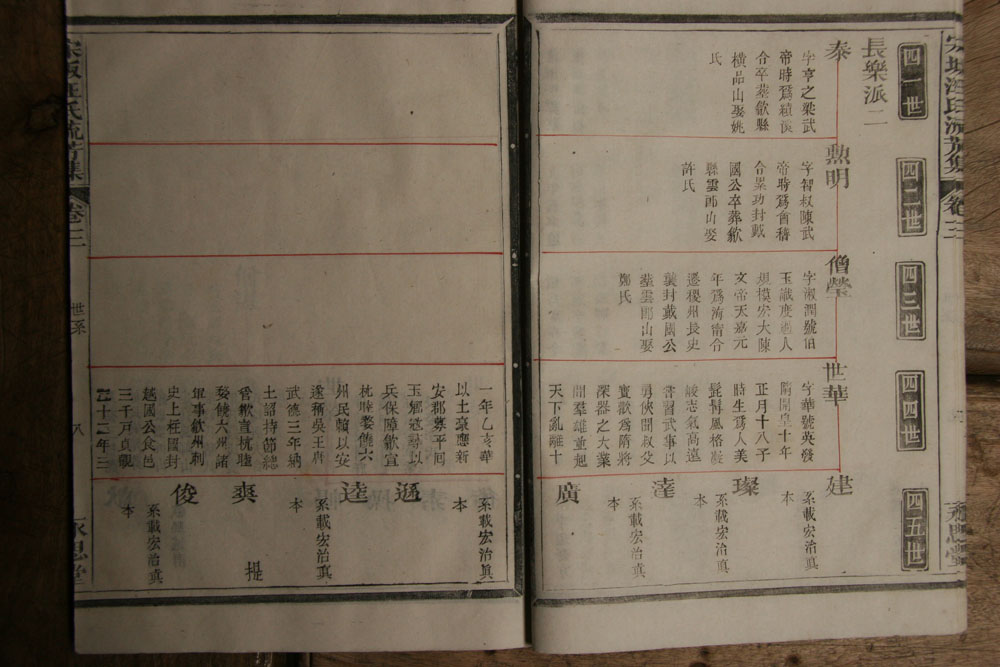 四一世
四二世
四三世
四四世
四五世
長樂派二
泰
字亨之梁武
帝時爲潁溪
令卒塟歙縣
橫品山娶姚
氏
勲明
字習叔陳武
帝時爲會稽
令累功封戴
國公卒葬歙
縣雲郎山娶
許氏
僧瑩
字淑潤號伯
玉識度過人
規模宏大陳
文帝天嘉元
年爲海甯令
遷稷州長史
襲封戴國公
塟雲郎山娶
鄭氏
世華
字華號英發
隋開皇十年
正月十八子
時生爲人美
髭髯風格凝
峻志氣高遠
嘗習武事以
勇俠聞叔父
寶歡爲隋將
深器之大業
間羣雄並起
天下亂離十
建
系載宏治眞
本
璨
系載宏治眞
本
達
系載宏治眞
本
廣
一年乙亥華
以土豪應新
安郡募平囘
玉鄉
兵保障歙宣
杭睦婺饒六
州民賴以安
遂稱吳王唐
武德三年納
土詔持節總
管歙宣杭睦
婺饒六州諸
軍事歙州刺
史上柱國封
越國公食邑
三千戸貞觀
二十二年三
系載宏治眞
本
遜
逵
系載宏治眞
本
爽
提
俊
系載宏治眞
本
汪氏流芳集
卷三
世系
八
永思堂